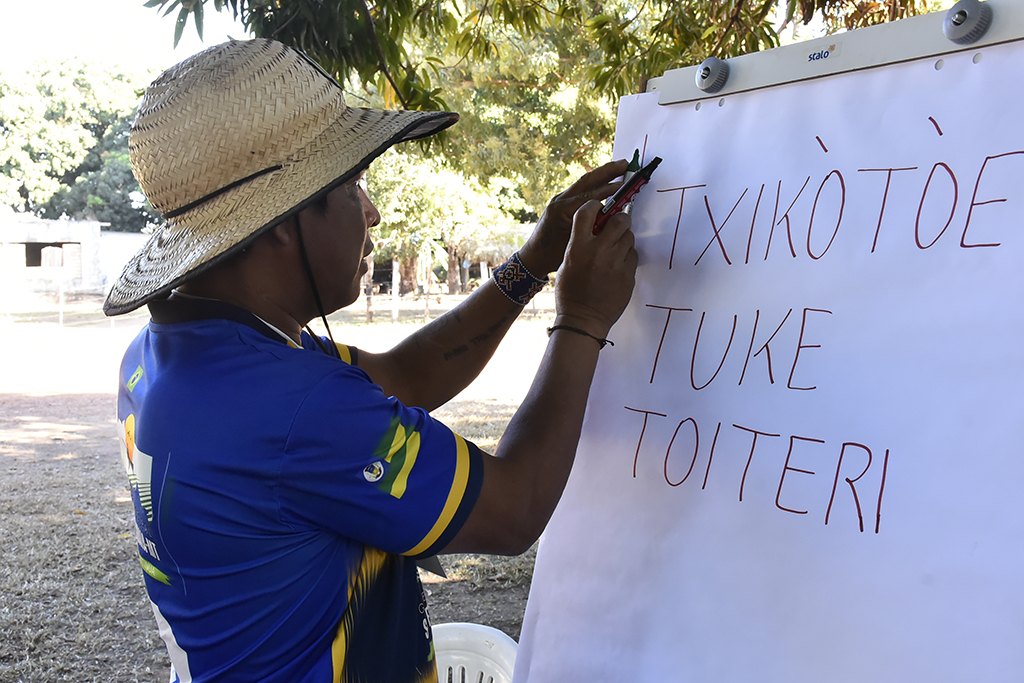 stalo
TXIKÒTÒE
TUKE
TOITERI